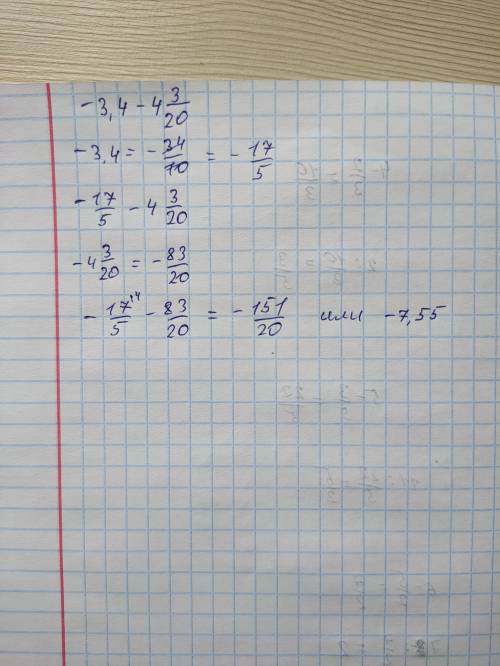 -3,4 - 4 3/20
-3,4 = -34/10 = -17/5
-17/5 - 4 3/20
-4 3/20 = -83/20
-17/5 ·4 - 83/20 = -151/20 или -7,55